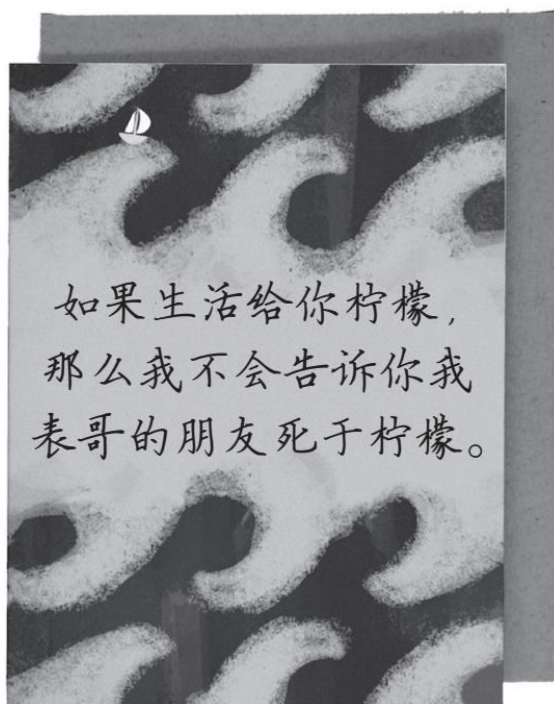 如果生活给你柠檬，
那么我不会告诉你我
表哥的朋友死于柠檬。